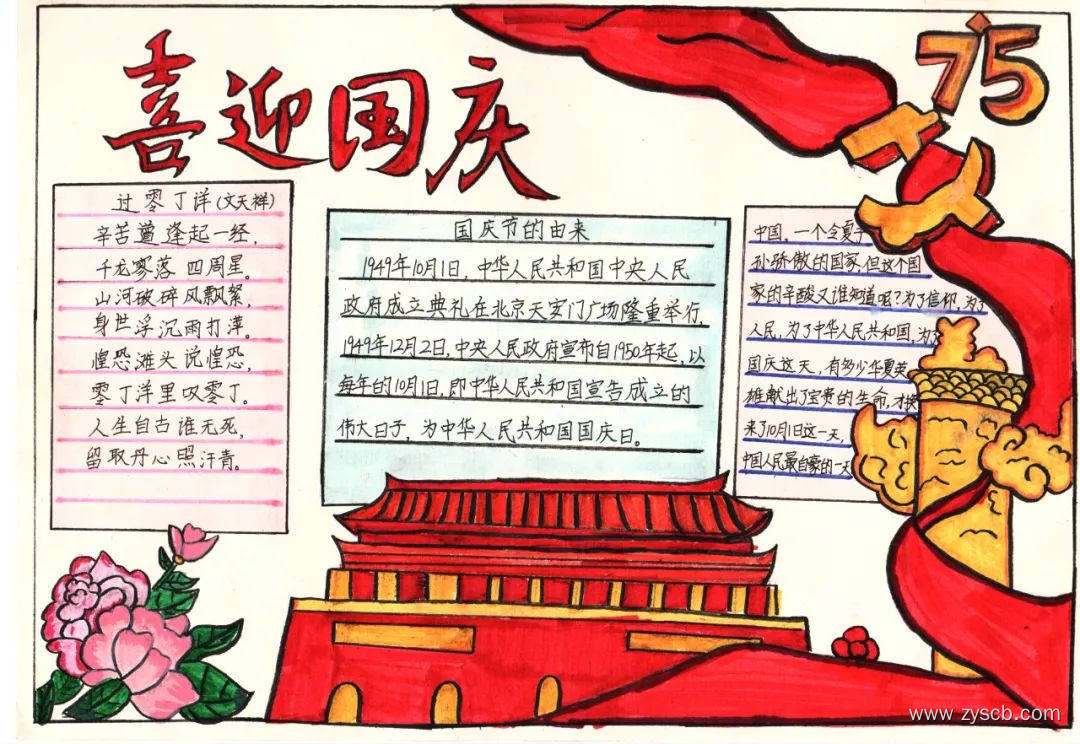 喜迎国庆
75
过零丁洋(文天祥)
辛苦遭逢起一经,
千戈寥落 四周星。
山河破碎风飘絮,
身世浮沉雨打萍。
惶恐滩头说惶恐,
零丁洋里叹零丁。
人生自古谁无死,
留取丹心照汗青。
国庆节的由来
1949年10月1日,中华人民共和国中央人民
政府成立典礼在北京天安门广场隆重举行,
1949年12月2日,中央人民政府宣布自1950年起,以
每年的10月1日,即中华人民共和国宣告成立的
伟大日子,为中华人民共和国国庆日。
中国,一个令夏子
孙骄傲的国家,但这个国
家的辛酸又谁知道呢?为了信仰,为了
人民,为了中华人民共和国,为
国庆这天,有多少华夏英
雄献出了宝贵的生命,才换
来了10月1日这一天,
中国人民最自豪的一天
www.zyscb.com